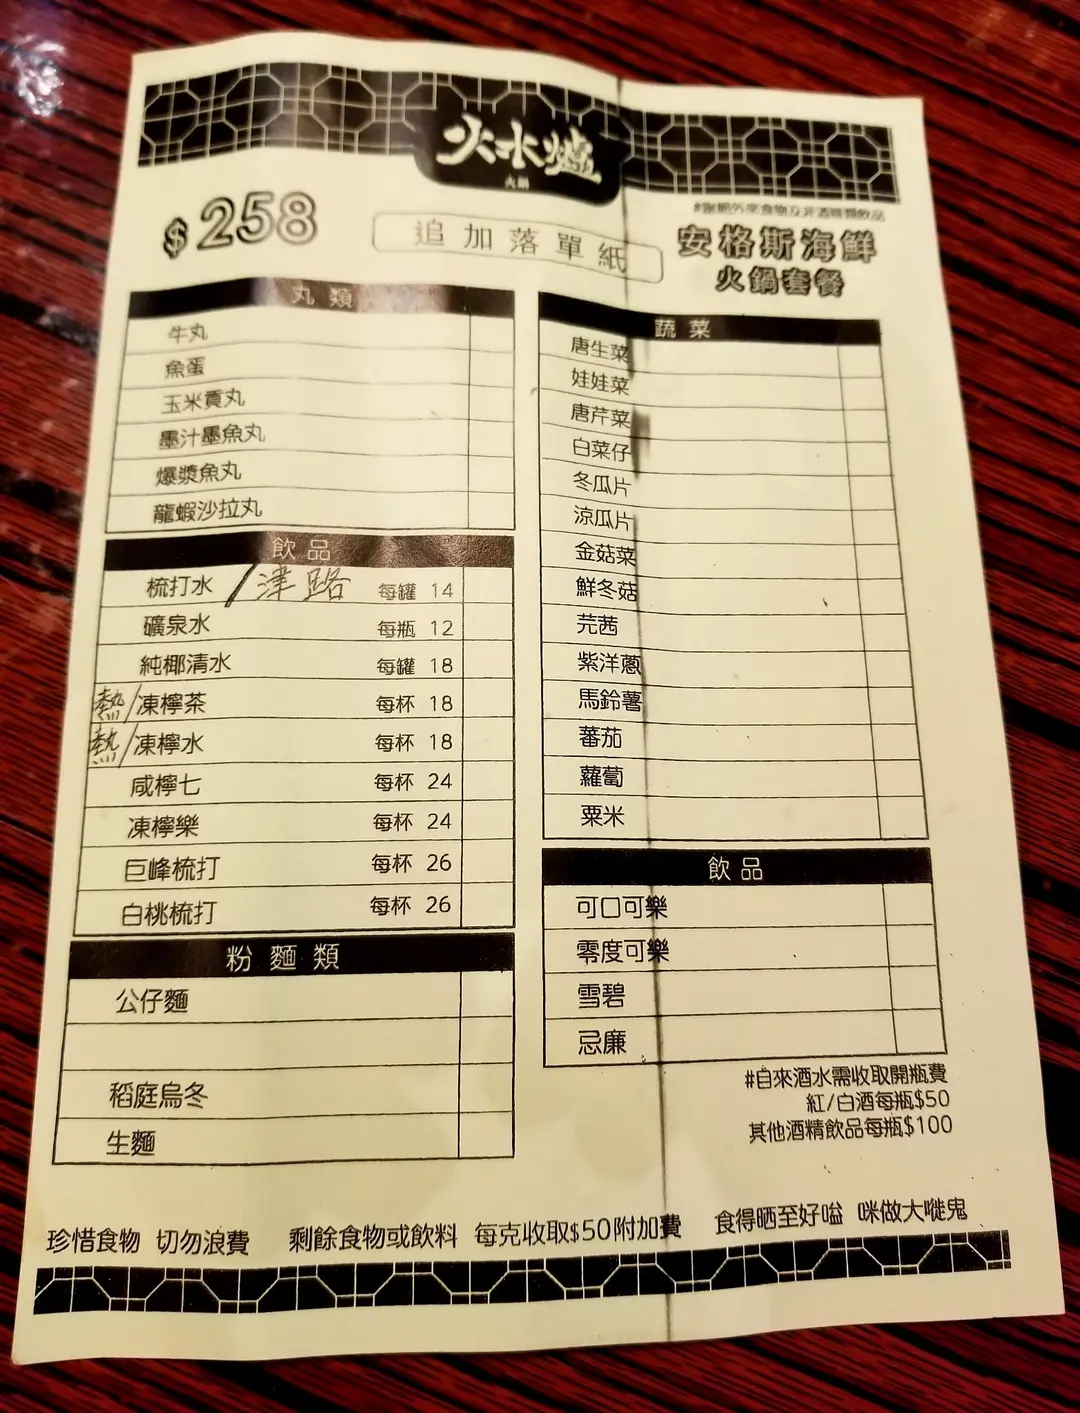 火水爐
火鍋
#謝絕外來食物及非酒精類飲品
$258
追加落單紙
安格斯海鮮
火鍋套餐
丸類
牛丸
魚蛋
玉米貢丸
墨汁墨魚丸
爆漿魚丸
龍蝦沙拉丸
飲品
梳打水 / 津路 每罐 14
礦泉水 每瓶 12
純椰清水 每罐 18
熱/凍檸茶 每杯 18
熱/凍檸水 每杯 18
咸檸七 每杯 24
凍檸樂 每杯 24
巨峰梳打 每杯 26
白桃梳打 每杯 26
粉麵類
公仔麵
稻庭烏冬
生麵
蔬菜
唐生菜
娃娃菜
唐芹菜
白菜仔
冬瓜片
涼瓜片
金菇菜
鮮冬菇
芫茜
紫洋蔥
馬鈴薯
蕃茄
蘿蔔
粟米
飲品
可口可樂
零度可樂
雪碧
忌廉
#自來酒水需收取開瓶費
紅/白酒每瓶$50
其他酒精飲品每瓶$100
珍惜食物 切勿浪費 剩餘食物或飲料 每克收取$50附加費 食得晒至好嗌 咪做大嘥鬼